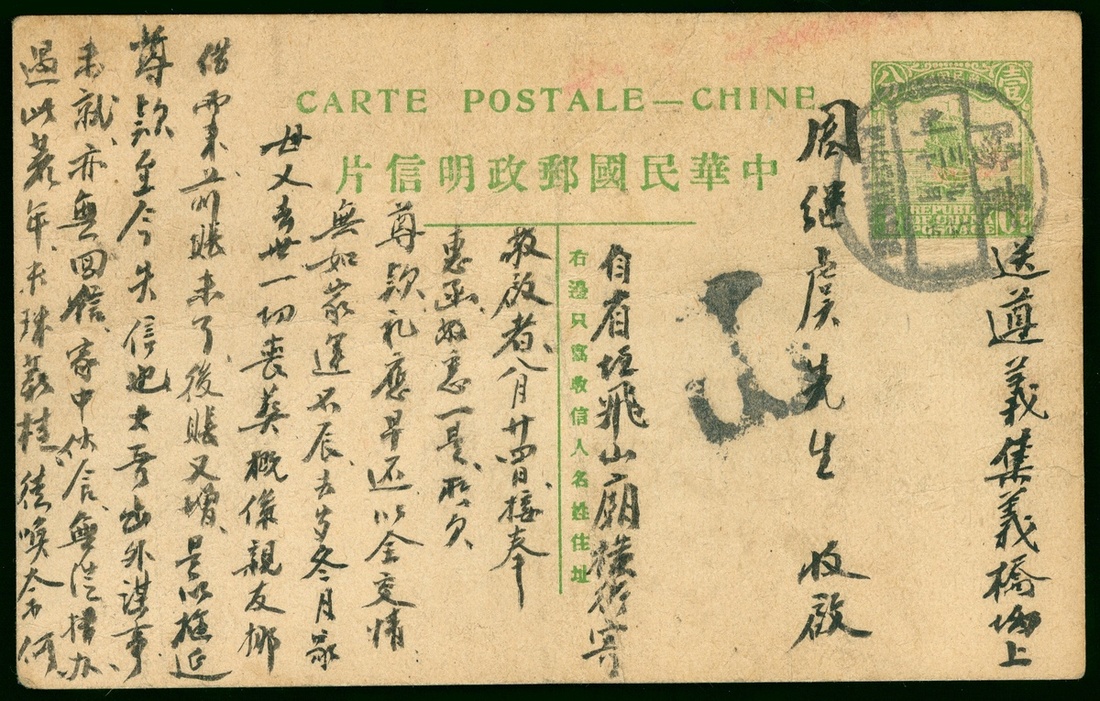 CARTE POSTALE—CHINE
中華民國郵政明信片
右邊只寫收信人名姓住址
壹
分
REPUBLIC
OF CHINA
POSTAGE
送遵義集義橋坳上
周繼虞先生 收啟
自省垣飛山廟橫街寄
敬啟者八月廿四日接奉
惠函敬悉一是所欠
尊款礼應早还以全交情
無如家運不辰去岁冬月家
母又去世一切喪葬概係親友挪
借而来前賬未了後賬又增是以拖延
尊款至今失信也士哥出外謀事
未就亦無回信家中伙食無從措办
過此荒年米珠薪桂徒唤奈何